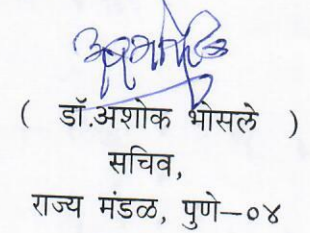 ( डॉ.अशोक भोसले )
सचिव,
राज्य मंडळ, पुणे–०४